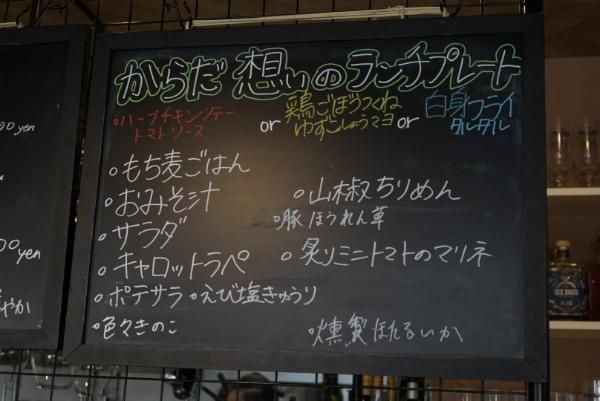 からだ 想いのランチプレート
•ハーブチキンソテー
トマトソース
or
鶏ごぼうつくね
ゆずこしょうマヨ
or
白身フライ
タルタル
•もち麦ごはん
•おみそ汁
•サラダ
•キャロットラペ
•ポテサラ •えび塩きゅうり
•色々きのこ
•山椒ちりめん
•豚ほうれん草
•炙りミニトマトのマリネ
•燻製ほたるいか
00 yen
00 yen
やか
SIX DOGS